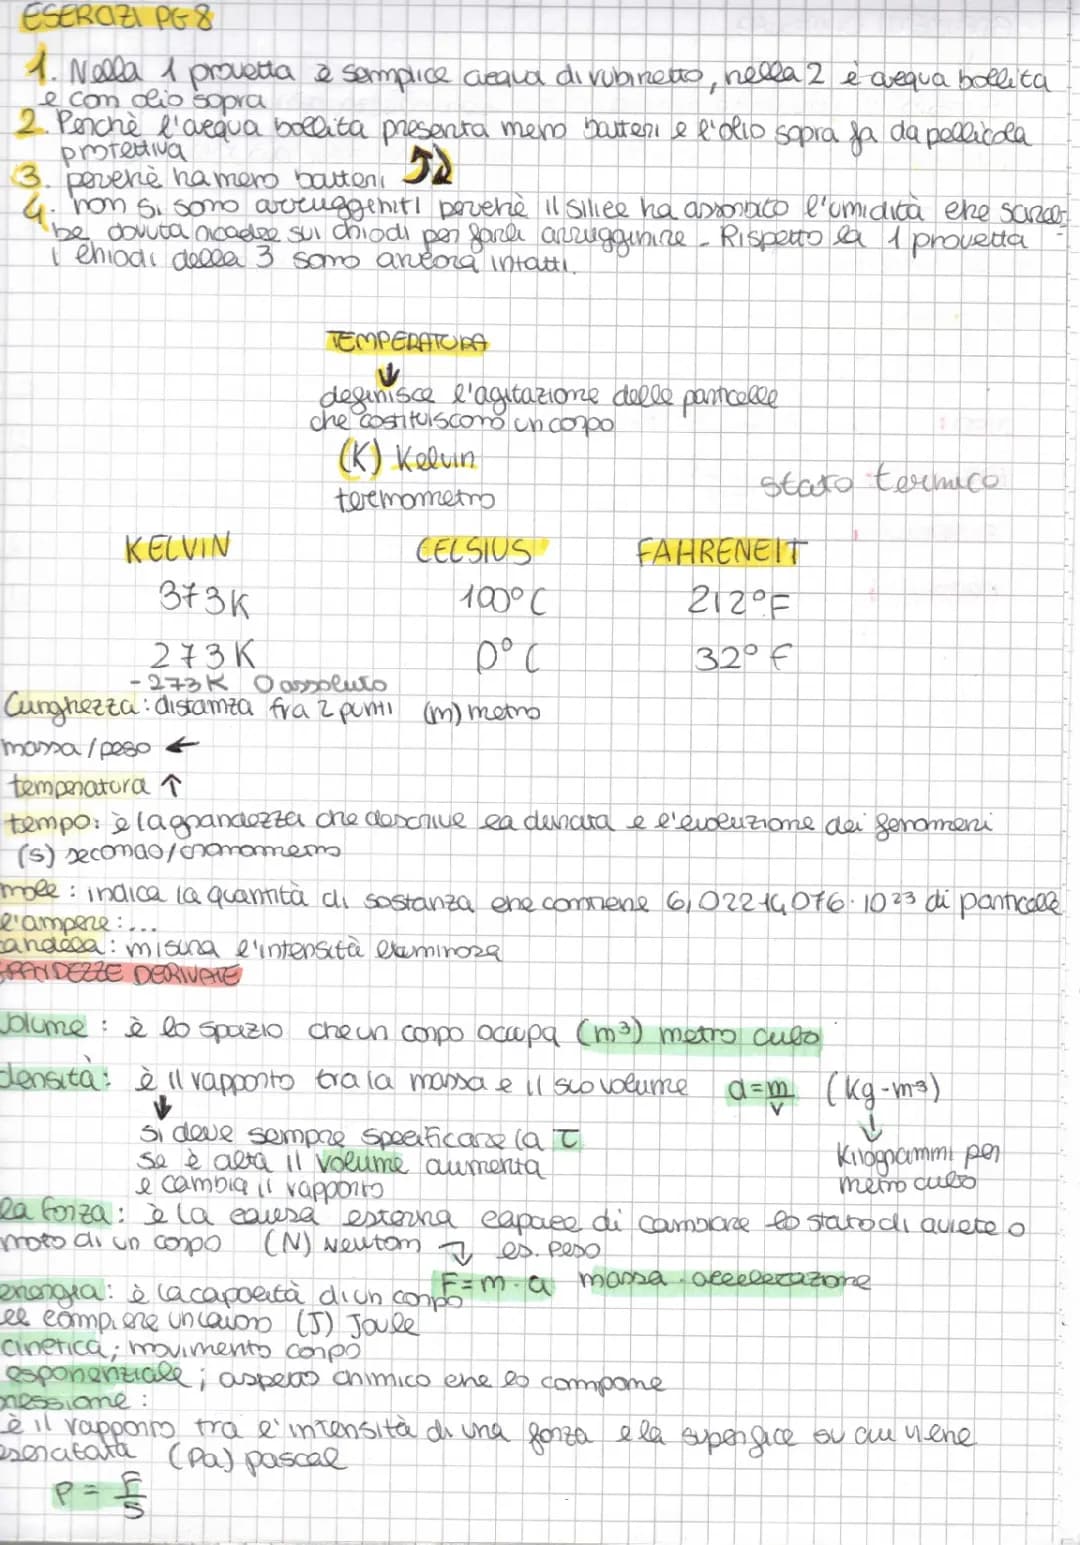 ESERCIZI PG 8
1. Nella 1 provetta è semplice acqua di rubinetto, nella 2 è acqua bollita
e con olio sopra
2. Perchè l'acqua bollita presenta meno batteri e l'olio sopra fa da pellicola
protettiva
3. perchè ha meno batteri
4. non si sono arrugginiti perchè il silice ha assorbito l'umidità che sareb-
be dovuta accadee sui chiodi per farli arrugginire - Rispetto la 1 provetta
i chiodi della 3 sono ancora intatti.
TEMPERATURA
definisce l'agitazione delle particelle
che costituiscono un corpo
(K) Kelvin
termometro
stato termico
KELVIN CELSIUS FAHRENEIT
373K 100°C 212°F
273K 0°C 32°F
-273K 0 assoluto
Lunghezza: distanza fra 2 punti (m) metro
massa/peso ←
temperatura ↑
tempo: è la grandezza che descrive la durata e l'evoluzione dei fenomeni
(s) secondo/cronometro
mole: indica la quantità di sostanza che contiene 6,02214076·10²³ di particelle
l'ampere:...
candela: misura l'intensità luminosa
GRANDEZZE DERIVATE
Volume: è lo spazio che un corpo occupa (m³) metro cubo
densità: è il rapporto tra la massa e il suo volume d=m/V (kg-m³)
si deve sempre specificare la T
se è alta il volume aumenta
e cambia il rapporto
Kilogrammi per
metro cubo
la forza: è la causa esterna capace di cambiare lo stato di quiete o
moto di un corpo (N) Newton es. peso
F=m·a massa·accelerazione
energia: è la capacità di un corpo
a compiere un lavoro (J) Joule
cinetica; movimento corpo
esponenziale; aspetto chimico che lo compone
pressione:
è il rapporto tra l'intensità di una forza e la superfice su cui viene
esercitata (Pa) pascal
P = F/S